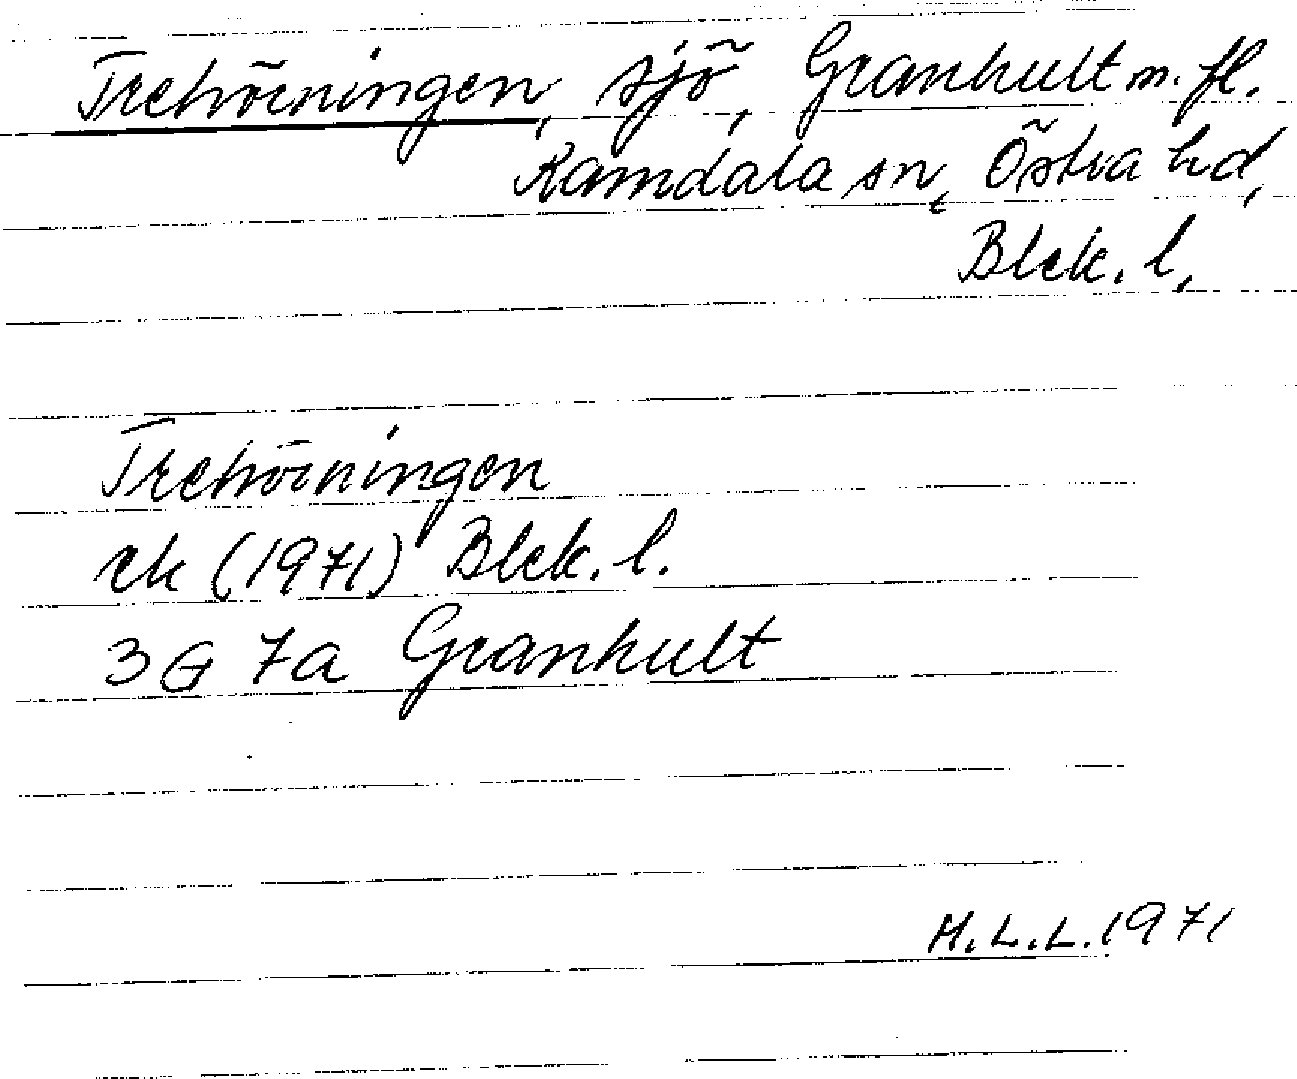 Trehörningen, sjö, Granhult m. fl.
Ramdala sn, Östra hd,
Blek. l.
Trehörningen
ek (1971) Blek. l.
3G 7a Granhult
M.L.L. 1971